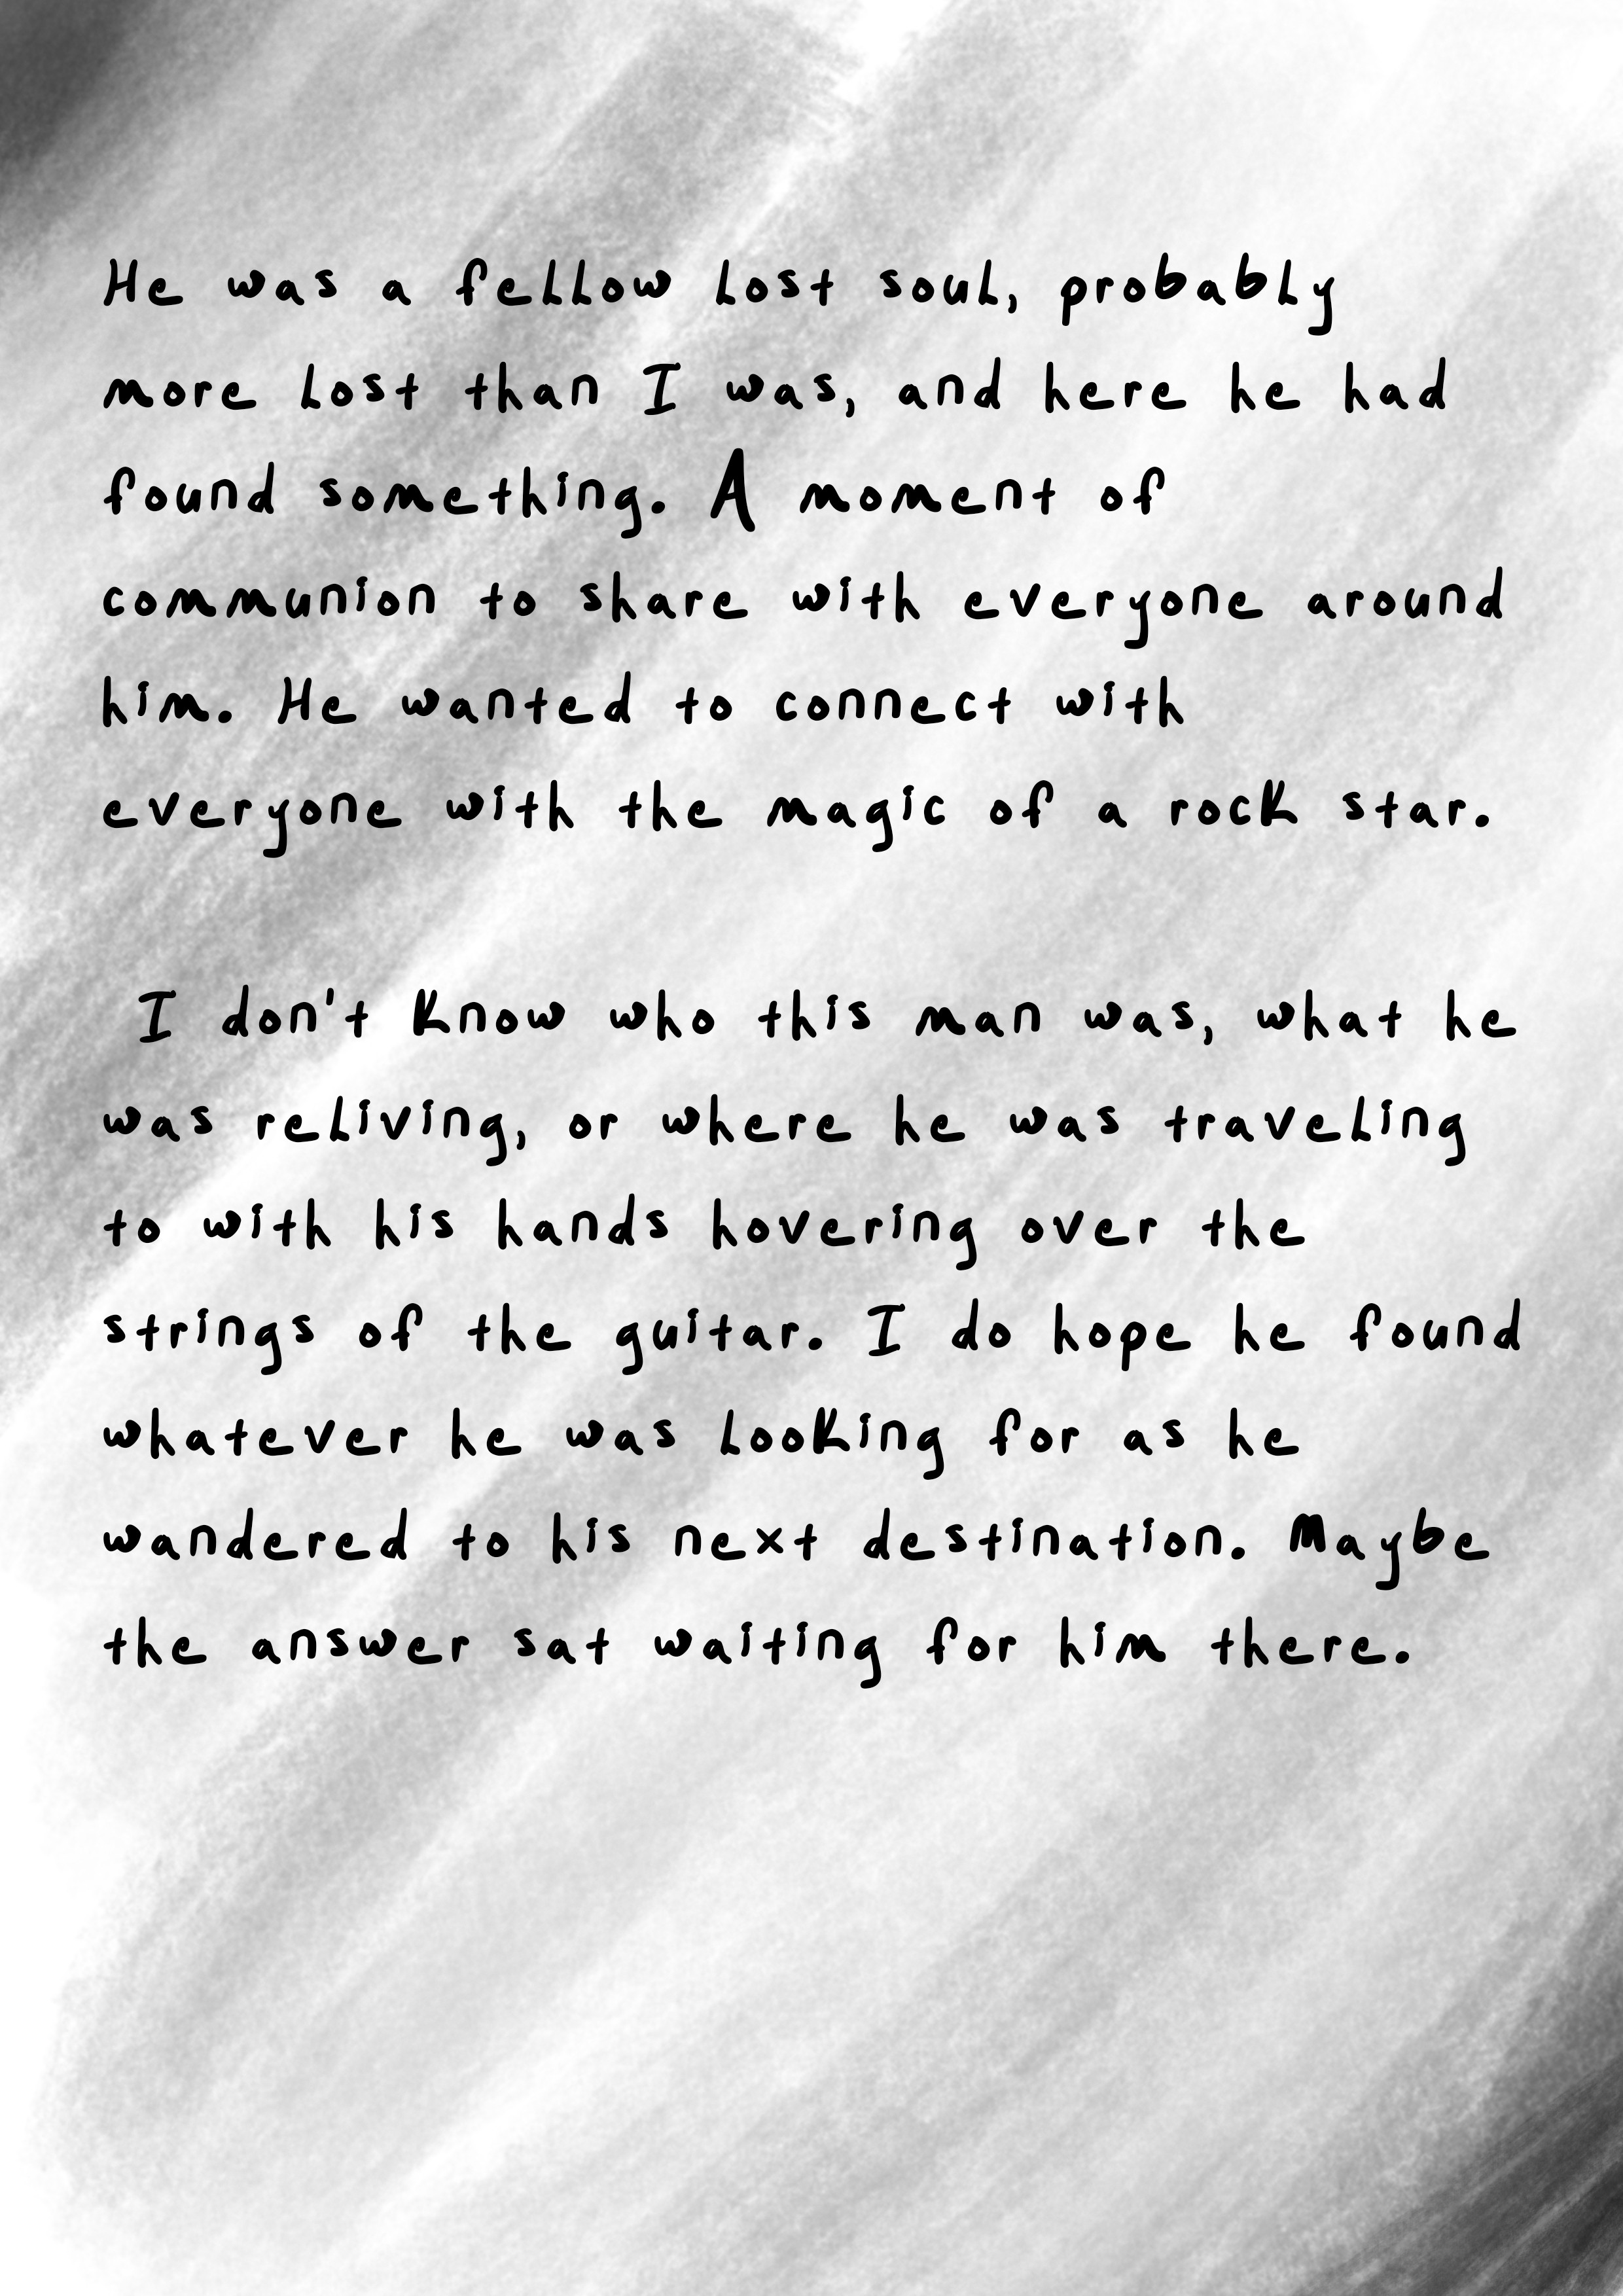 He was a fellow lost soul, probably
more lost than I was, and here he had
found something. A moment of
communion to share with everyone around
him. He wanted to connect with
everyone with the magic of a rock star.
I don't know who this man was, what he
was reliving, or where he was traveling
to with his hands hovering over the
strings of the guitar. I do hope he found
whatever he was looking for as he
wandered to his next destination. Maybe
the answer sat waiting for him there.